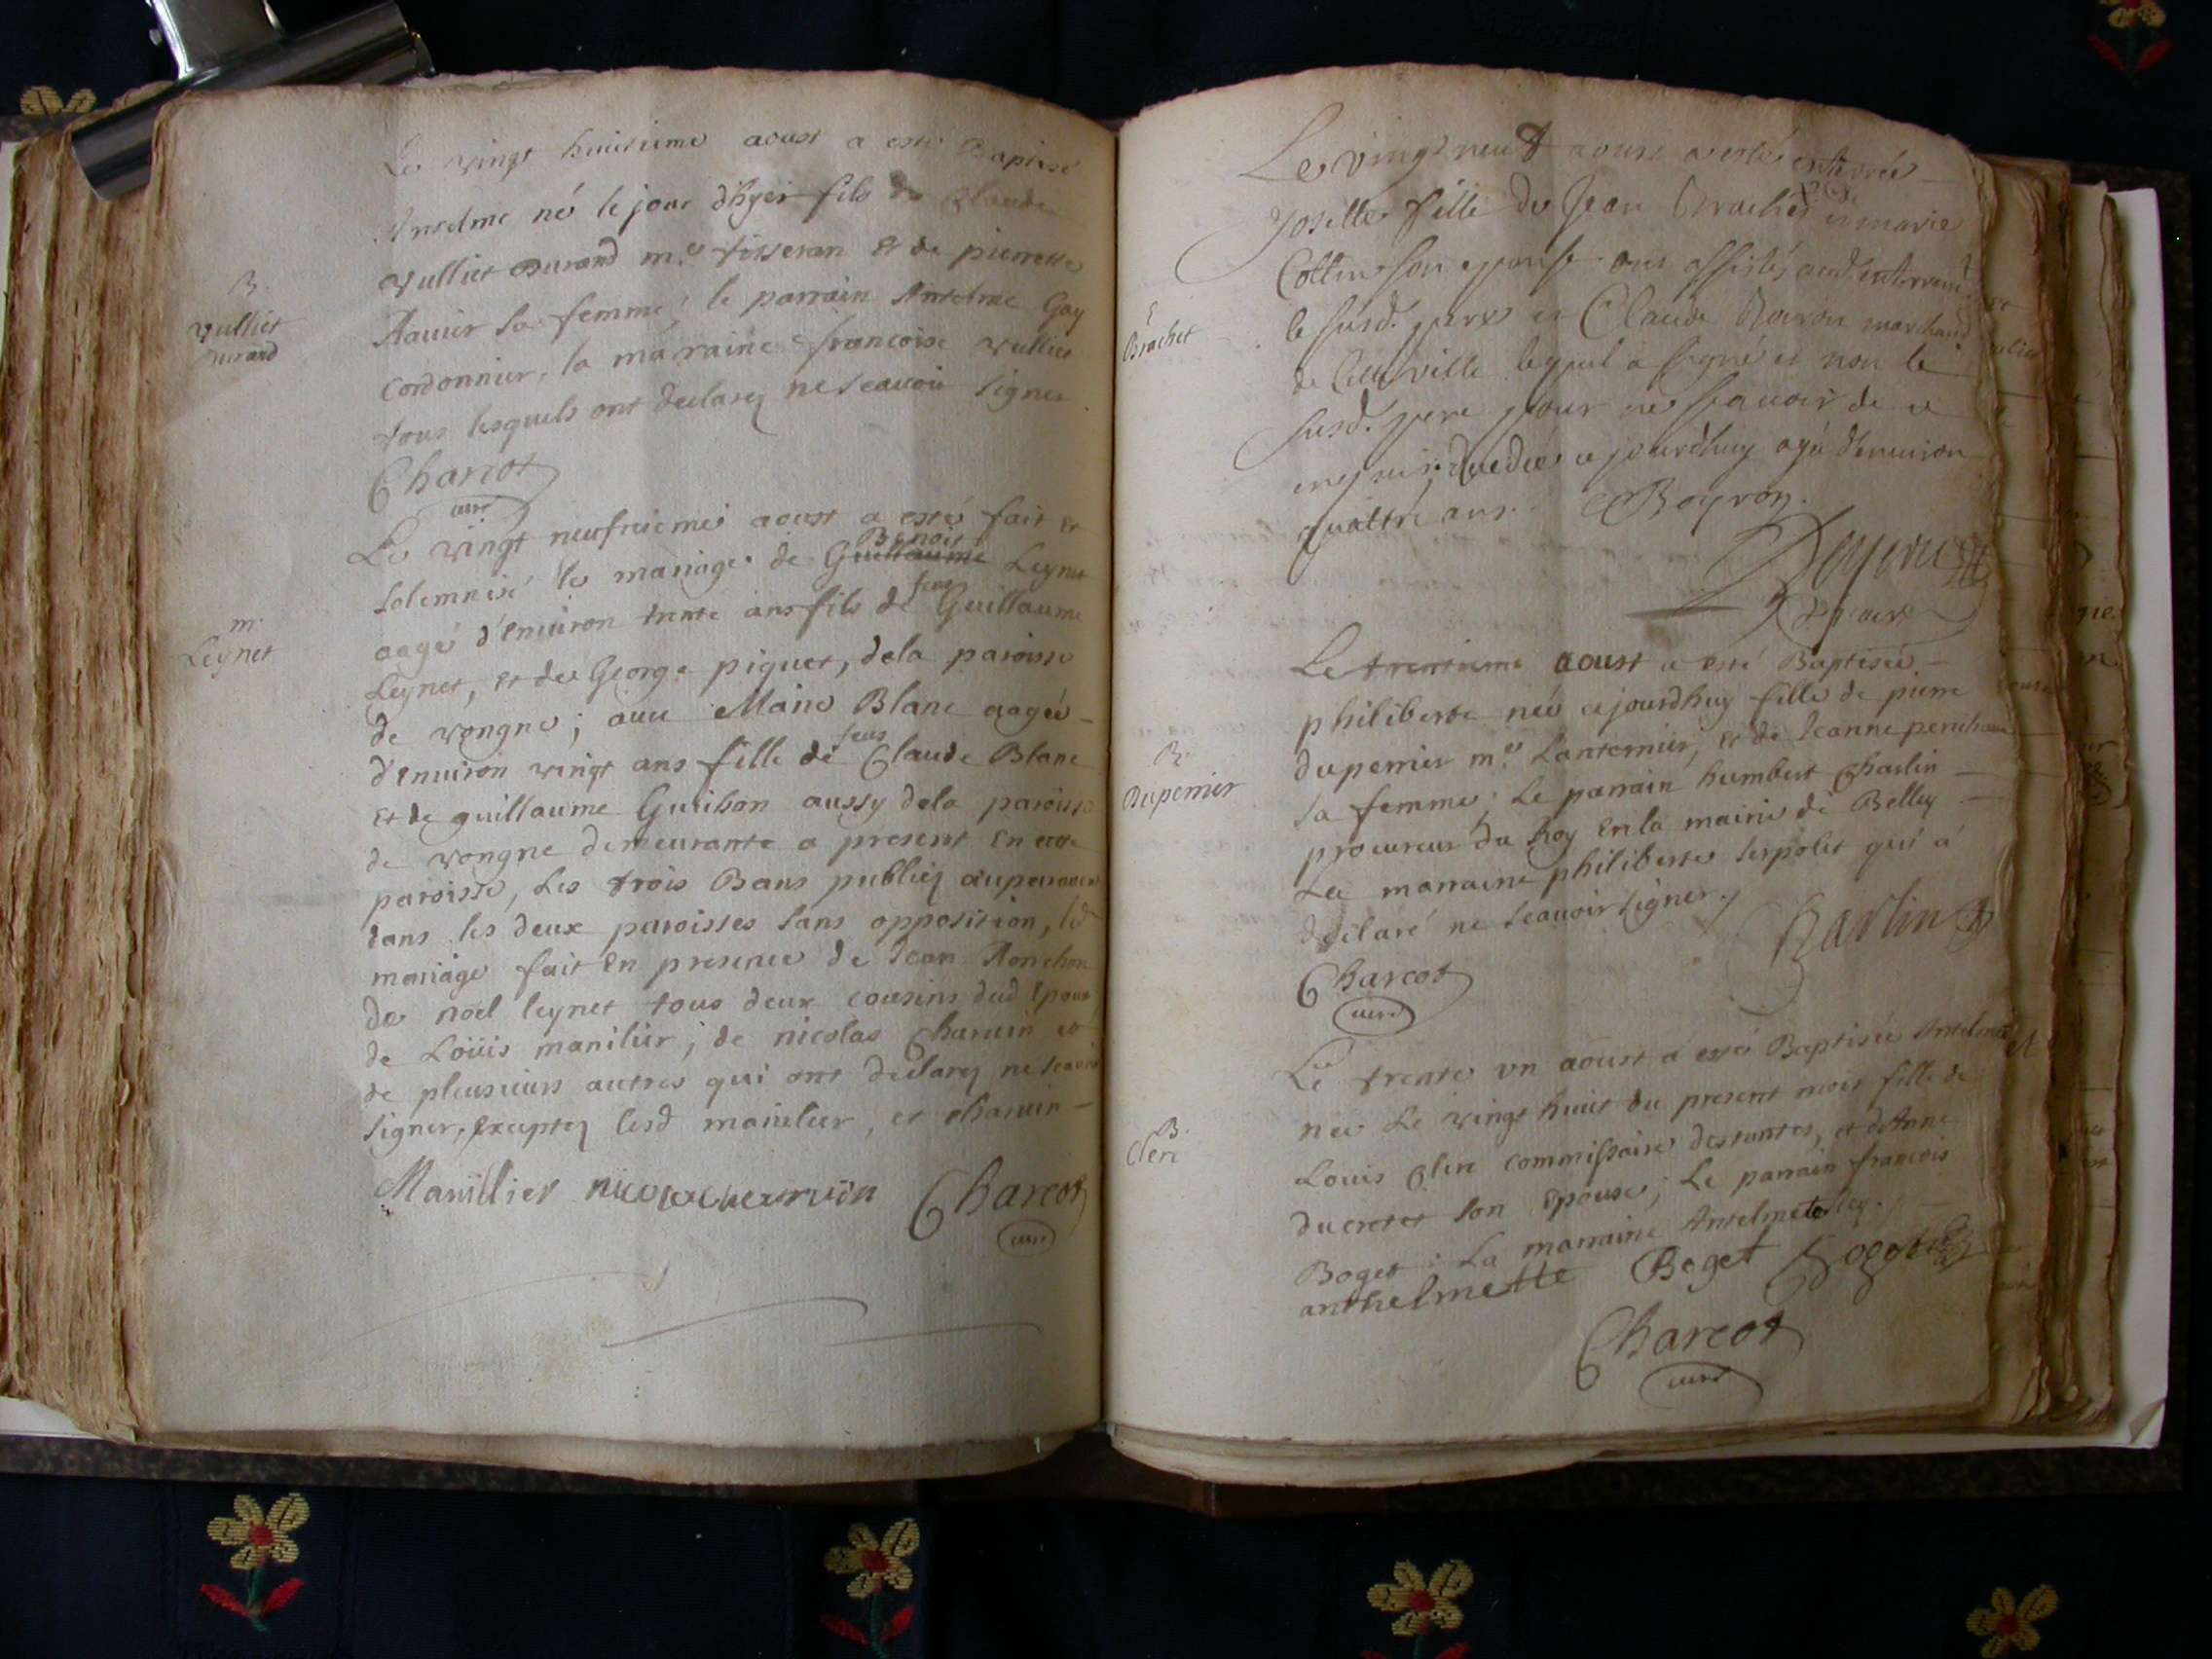 Le vingt huitieme aoust a esté Baptisé
Anselme né le jour d'hyer fils de Claude
B.
Vulliet
Durand
Vulliet Durand m.e tisseran et de pierrette
sa femme; le parrain Antelme Gay
cordonnier, la marraine francoise vulliet
tous lesquels ont declarez ne scavoir signer
Charcot
curé
Le vingt neufvieme aoust a esté fait et
Benoit
solemnisé le mariage de Guillaume Leynet
feu
m.
Leynet
aagé d'environ trente ans fils de Guillaume
Leynet, et de George piguet, dela paroisse
de vongne; avec Marie Blanc aagée
feus
d'environ vingt ans fille de Claude Blanc
et de guillaume aussy dela paroisse
de vongne demeurante a present en cette
paroisse, Les trois Bans publiez auparavant
dans les deux paroisses sans opposition, led
mariage fait en presence de Jean Ronchon
de noël leynet tous deux cousins dud Epoux
de Loüis manilier; de nicolas Charvin et
de plusieurs autres qui ont declarez ne scavoir
signer, Exceptez lesd manilier, et charvin
Manillier nicolas charvin Charcot
curé
Le vingt neuf aoust a esté enterrée
Joselle fille de Jean Brachet et marie
Cottin son epouse ont assistés aud. enterrem.t
E
Brachet
le susd. pere et Claude Boiron marchand
de cette ville lequel a signé et non le
susd. pere pour ne scavoir de ce
enquis. decedée cejourdhuy agé d'environ
quattre ans. Boyron.
vicaire
Le trentieme aoust a esté Baptisée
philiberte née cejourdhuy fille de pierre
B.
Duperrier
duperrier m.e Lanternier, et de Jeanne
sa femme; Le parrain humbert Charlin
procureur du Roy en la mairie de Belley
La marraine philiberte serpolet qui a
déclaré ne scavoir signer.
Charlin
Charcot
curé
Le trente un aoust a esté Baptisée Antelmette
née Le vingt huict du present mois fille de
B.
Clerc
Louis Clerc commissaire destentes, et d'Anne
ducretet son Epouse; Le parrain francois
Boget; La marraine Antelmette
anthelmette Boget Boget
Charcot
curé